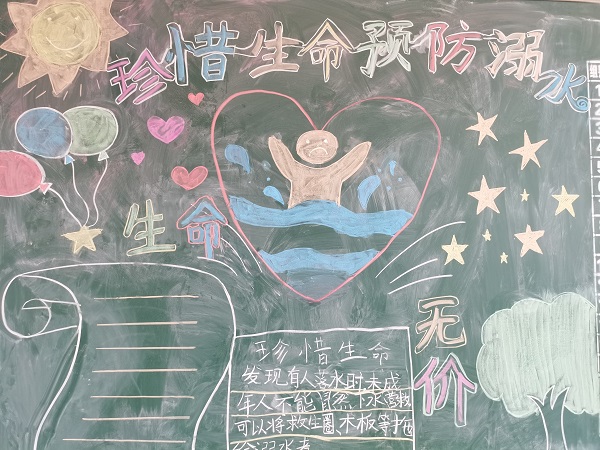 珍惜生命预防溺水
生命
无价
珍惜生命
发现有人落水时未成
年人不能贸然下水营救
可以将救生圈、木板等抛
给溺水者